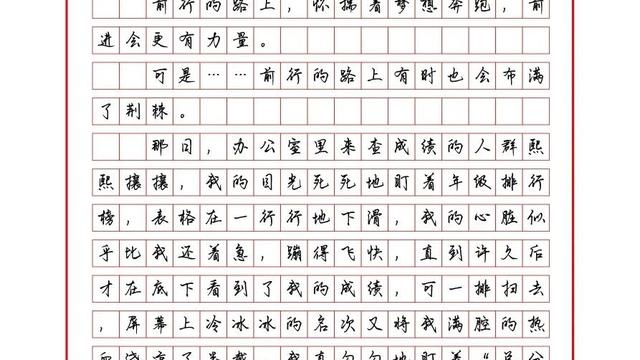 前行的路上，怀揣着梦想奔跑，前
进会更有力量。
可是……前行的路上有时也会布满
了荆棘。
那日，办公室里来查成绩的人群熙
熙攘攘，我的目光死死地盯着年级排行
榜，表格在一行行地下滑，我的心脏似
乎比我还着急，蹦得飞快，直到许久后
才在底下看到了我的成绩，可一排扫去
，屏幕上冷冰冰的名次又将我满腔的热
地盯着“总分